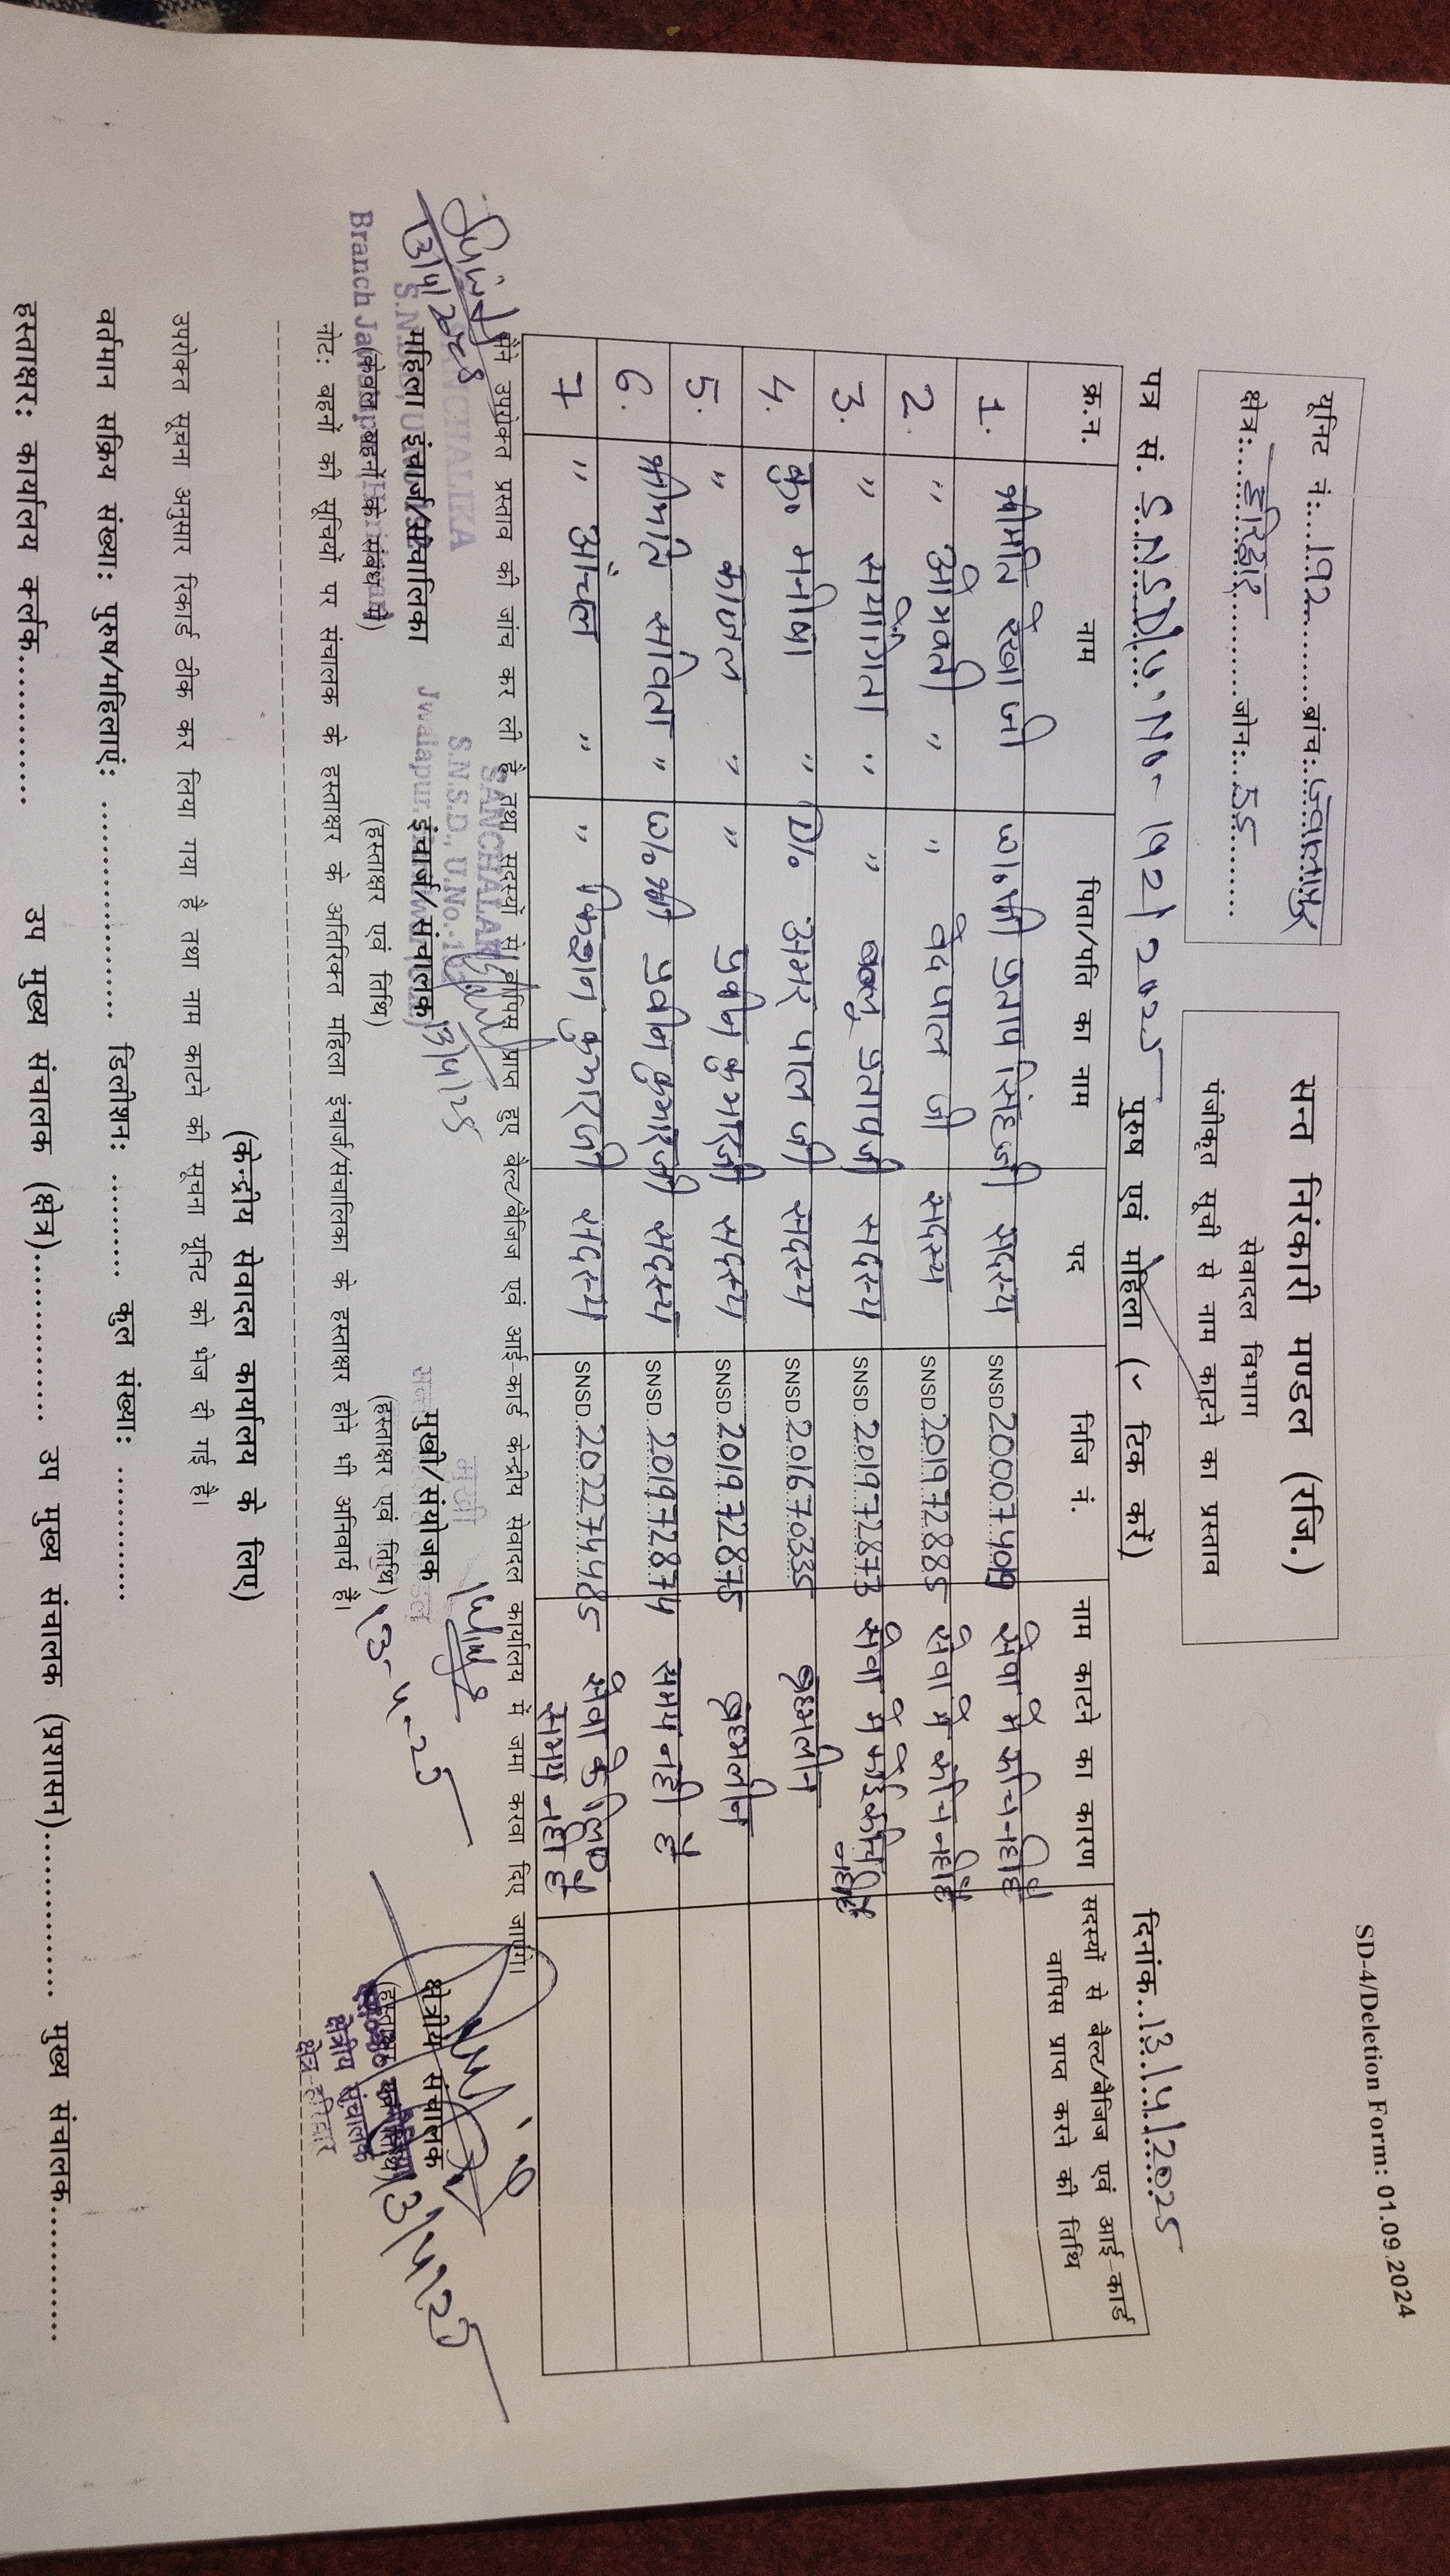 SD-4/Deletion Form: 01.09.2024
यूनिट नं:....192............ब्रांच:..ज्वालापुर
क्षेत्र:....हरिद्वार............जोन:...55..........
सन्त निरंकारी मण्डल (रजि.)
सेवादल विभाग
पंजीकृत सूची से नाम काटने का प्रस्ताव
पत्र सं. S.N.S.D/U.No- 192/2025 पुरुष एवं महिला (✓ टिक करें) दिनांक..13/4/2025
क्र.न. नाम पिता/पति का नाम पद सिजि नं. नाम काटने का कारण सदस्यों से बेल्ट/बैजिज एवं आई-कार्ड वापिस प्राप्त करने की तिथि
1. श्रीमति रेखा जी W/o श्री प्रताप सिंह जी सदस्य SNSD.20007409 सेवा में रूचि नहीं है
2. " ओमवती " " वेदपाल जी सदस्य SNSD.201972885 सेवा में रूचि नहीं है
3. " संयोगिता " " प्रताप जी सदस्य SNSD.201972873 सेवा में कोई रूचि नहीं है
4. कु० मनीषा " D/o अमर पाल जी सदस्य SNSD.201670335 ब्रह्मलीन
5. " काजल " " प्रवीन कुमार जी सदस्य SNSD.201972875 ब्रह्मलीन
6. श्रीमति सविता " W/o श्री प्रवीन कुमार जी सदस्य SNSD.201972874 समय नही है
7 " आंचल " " किशन कुमार जी सदस्य SNSD.202274485 सेवा के लिए समय नही है
मैंने उपरोक्त प्रस्ताव की जांच कर ली है तथा सदस्यों से वापिस प्राप्त हुए बेल्ट/बैजिज एवं आई-कार्ड केन्द्रीय सेवादल कार्यालय में जमा करवा दिए जाएंगे।
SANCHALIKA
SANCHALAK
S.N.S.D., U.No.
13/4/2025
13/4/25
13-4-25
13/4/25
महिला इंचार्ज/संचालिका इंचार्ज/संचालक मुखी/संयोजक क्षेत्रीय संचालक
(केवल बहनों के संबंध में) (हस्ताक्षर एवं तिथि) (हस्ताक्षर एवं तिथि) (हस्ताक्षर एवं तिथि)
क्षेत्रीय संचालक
क्षेत्र-हरिद्वार
नोट: बहनों की सूचियों पर संचालक के हस्ताक्षर के अतिरिक्त महिला इंचार्ज/संचालिका के हस्ताक्षर होने भी अनिवार्य है।
(केन्द्रीय सेवादल कार्यालय के लिए)
उपरोक्त सूचना अनुसार रिकार्ड ठीक कर लिया गया है तथा नाम काटने की सूचना यूनिट को भेज दी गई है।
वर्तमान सक्रिय संख्या: पुरुष/महिलाएं: ...................... डिलीशन: .......... कुल संख्या: ..............
हस्ताक्षर: कार्यालय कर्लक.............. उप मुख्य संचालक (क्षेत्र)................ उप मुख्य संचालक (प्रशासन)................ मुख्य संचालक..............